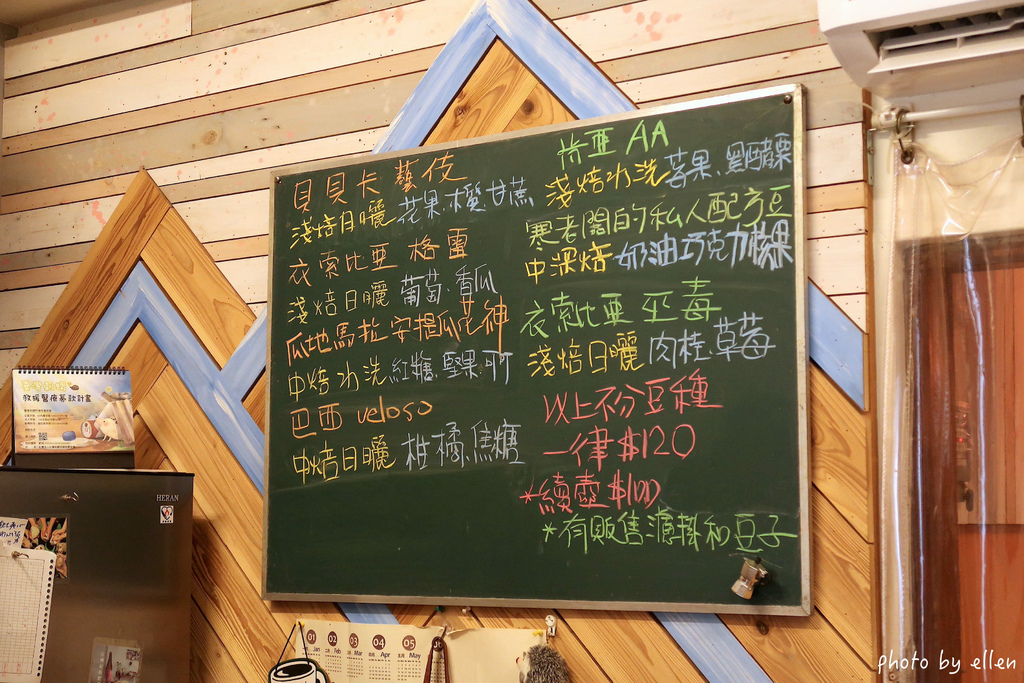 貝貝卡 藝伎
淺焙日曬 花果.柑橙.甘蔗
衣索比亞 格雷
淺焙日曬 葡萄.香瓜
瓜地馬拉 安提瓜花神
中焙水洗 紅糖.堅果.可可
巴西 veloso
中焙日曬 柑橘.焦糖
肯亞 AA
淺焙水洗 莓果.黑醋栗
寒老闆的私人配方豆
中深焙 奶油巧克力.核果
衣索比亞 巫毒
淺焙日曬 肉桂.草莓
以上不分豆種
一律$120
*續壺$100
*有販售濾掛和豆子
救援醫療募款計畫
HERAN
01 Jan
02 Feb
03 Mar
04 Apr
05 May
photo by ellen